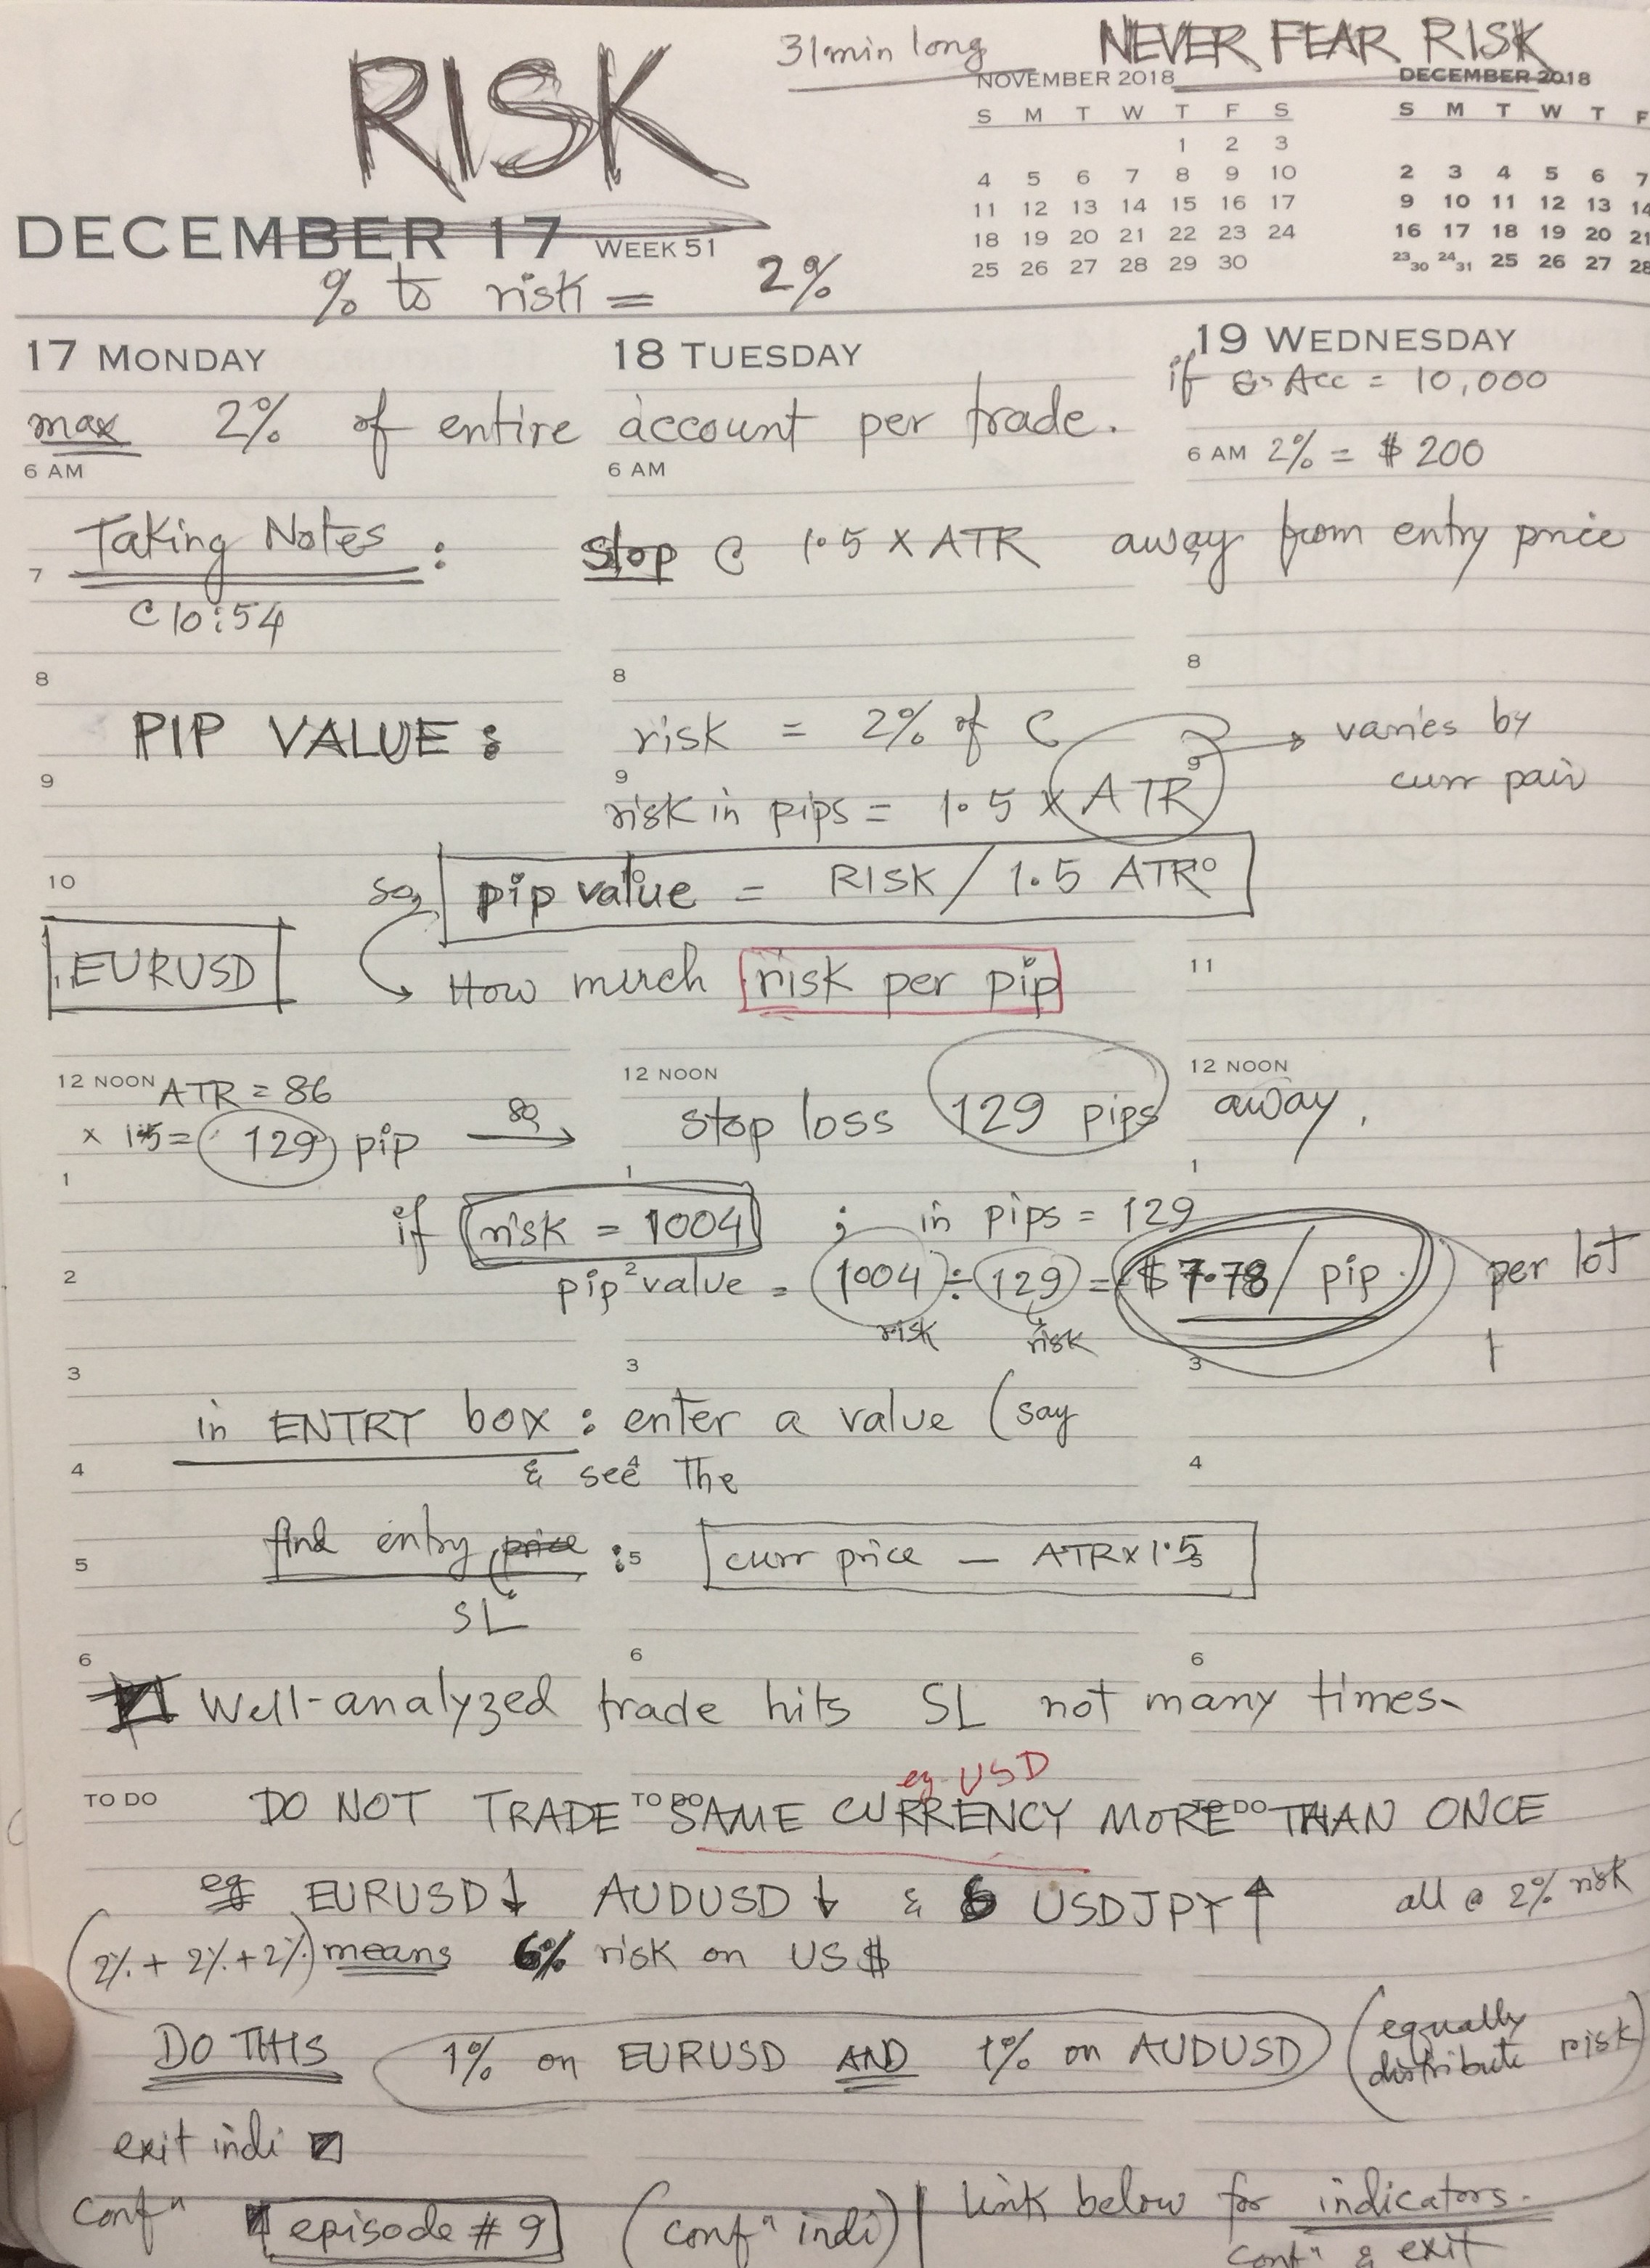 RISK
31min long
NEVER FEAR RISK
NOVEMBER 2018
S M T W T F S
1 2 3
4 5 6 7 8 9 10
11 12 13 14 15 16 17
18 19 20 21 22 23 24
25 26 27 28 29 30
DECEMBER 2018
S M T W T F
2 3 4 5 6 7
9 10 11 12 13 14
16 17 18 19 20 21
23 30 24 31 25 26 27 28
DECEMBER 17 WEEK 51
% to risk = 2%
17 MONDAY
18 TUESDAY
19 WEDNESDAY
if Acc = 10,000
max 2% of entire account per trade.
6 AM
6 AM
6 AM 2% = $ 200
Taking Notes :
stop @ 1.5 x ATR away from entry price
7
@ 10:54
8
8
8
PIP VALUE :
risk = 2% of C
varies by
curr pair
9
9
9
risk in pips = 1.5 x ATR
10
so, pip value = RISK / 1.5 ATR
EURUSD
How much risk per pip
11
12 NOON
12 NOON
12 NOON
ATR = 86
x 1.5 = 129 pip
so
stop loss 129 pips away.
1
1
1
if risk = 1004 ; in pips = 129
2
2
pip value = 1004 ÷ 129 = $ 7.78 / pip per lot
risk risk
1
3
3
3
in ENTRY box : enter a value (say
& see the
4
4
4
find entry price : curr price - ATR x 1.5
SL
5
5
6
6
6
Well-analyzed trade hits SL not many times.
eg USD
TO DO
TO DO
TO DO
DO NOT TRADE SAME CURRENCY MORE THAN ONCE
eg EURUSD ↓ AUDUSD ↓ & USDJPY ↑ all @ 2% risk
(2% + 2% + 2%) means 6% risk on US $
DO THIS 1% on EURUSD AND 1% on AUDUSD (equally distribute risk)
exit indi
Conf" episode # 9 (conf" indi) | link below for indicators.
conf" & exit